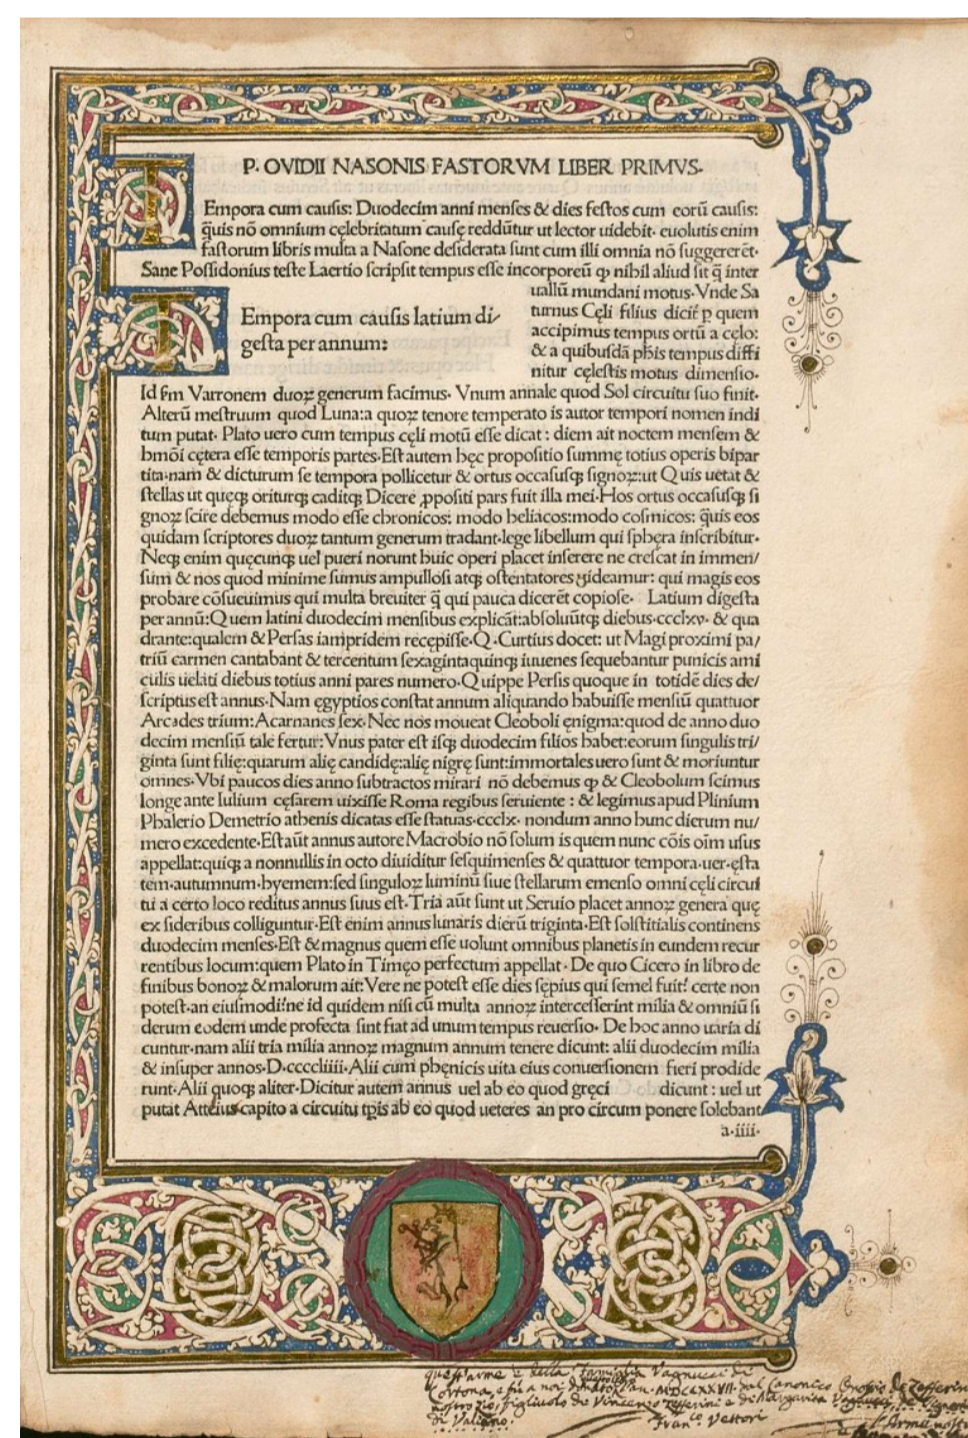 P. OVIDII NASONIS FASTORVM LIBER PRIMVS.
TEmpora cum causis: Duodecim anni menses & dies festos cum eorũ causis:
q̃uis nõ omnium cęlebritatum causę reddũtur ut lector uidebit. euolutis enim
fastorum libris multa a Nasone desiderata sunt cum illi omnia nõ suggererẽt.
Sane Possidonius teste Laertio scripsit tempus esse incorporeũ ꝙ nihil aliud sit q̃ inter
uallũ mundani motus. Vnde Sa
turnus Cęli filius dicit̃ ꝑ quem
accipimus tempus ortũ a cęlo:
& a quibusdã pħis tempus diffi
nitur cęlestis motus dimensio.
TEmpora cum causis latium di/
gesta per annum:
Id ẜm Varronem duoꝝ generum facimus. Vnum annale quod Sol circuitu suo finit.
Alterũ mestruum quod Luna: a quoꝝ tenore temperato is autor tempori nomen indi
tum putat. Plato uero cum tempus cęli motũ esse dicat: diem ait noctem mensem &
hmõi cętera esse temporis partes. Est autem hęc propositio summę totius operis bipar
tita. nam & dicturum se tempora pollicetur & ortus occasusqꝫ signoꝝ: ut Quis uetat &
stellas ut quęqꝫ oriturqꝫ caditqꝫ Dicere ꝓpositi pars fuit illa mei. Hos ortus occasusqꝫ si
gnoꝝ scire debemus modo esse chronicos: modo heliacos: modo cosmicos: q̃uis eos
quidam scriptores duoꝝ tantum generum tradant. lege libellum qui sphęra inscribitur.
Neqꝫ enim quęcunqꝫ uel pueri norunt huic operi placet inserere ne crescat in immen/
sum & nos quod minime sumus ampullosi atqꝫ ostentatores uideamur: qui magis eos
probare cõsueuimus qui multa breuiter q̃ qui pauca dicerẽt copiose. Latium digesta
per annũ: Quem latini duodecim mensibus explicãt: absoluũtqꝫ diebus. ccclxv. & qua
drante: qualem & Persas iampridem recępisse. Q. Curtius docet: ut Magi proximi pa/
triũ carmen cantabant & tercentum sexagintaquinqꝫ iuuenes sequebantur punicis ami
culis uelati diebus totius anni pares numero. Quippe Persis quoque in totidẽ dies de/
scriptus est annus. Nam ęgyptios constat annum aliquando habuisse mensiũ quattuor
Arcades trium: Acarnanes sex. Nec nos moueat Cleoboli ęnigma: quod de anno duo
decim mensiũ tale fertur: Vnus pater est isqꝫ duodecim filios habet: eorum singulis tri/
ginta sunt filię: quarum alię candidę: alię nigrę sunt: immortales uero sunt & moriuntur
omnes. Vbi paucos dies anno subtractos mirari nõ debemus ꝙ & Cleobolum scimus
longe ante Iulium cęsarem uixisse Roma regibus seruiente: & legimus apud Plinium
Phalerio Demetrio athenis dicatas esse statuas. ccclx. nondum anno hunc dierum nu/
mero excedente. Est aũt annus autore Macrobio nõ solum is quem nunc cõis oĩm usus
appellat: quiqꝫ a nonnullis in octo diuiditur sesquimenses & quattuor tempora. uer. ęsta
tem. autumnum. hyemem: sed singuloꝝ luminũ siue stellarum emenso omni cęli circui
tu a certo loco reditus annus suus est. Tria aũt sunt ut Seruio placet annoꝝ genera quę
ex sideribus colliguntur. Est enim annus lunaris dierũ triginta. Est solstitialis continens
duodecim menses. Est & magnus quem esse uolunt omnibus planetis in eundem recur
rentibus locum: quem Plato in Timęo perfectum appellat. De quo Cicero in libro de
finibus bonoꝝ & malorum ait: Vere ne potest esse dies sępius qui semel fuit: certe non
potest. an eiusmodi: ne id quidem nisi cũ multa annoꝝ intercesserint milia & omniũ si
derum eodem unde profecta sint fiat ad unum tempus reuersio. De hoc anno uaria di
cuntur. nam alii tria milia annoꝝ magnum annum tenere dicunt: alii duodecim milia
& insuper annos. D.ccccliiii. Alii cum phęnicis uita eius conuersionem fieri prodide
runt. Alii quoqꝫ aliter. Dicitur autem annus uel ab eo quod gręci dicunt: uel ut
putat Atteius capito a circuitu tp̃is ab eo quod ueteres an pro circum ponere solebant
a.iiii.
quest'arme è della famiglia Vagnucci di
Cortona, e fù a noi donato l'an. MDCLXXVII. dal Canonico Onofrio de Zefferini
nostro zio, figliuolo di Vincenzo Zefferini e di Margarita Vagnucci
di Valiano.
Franc.º Vettori